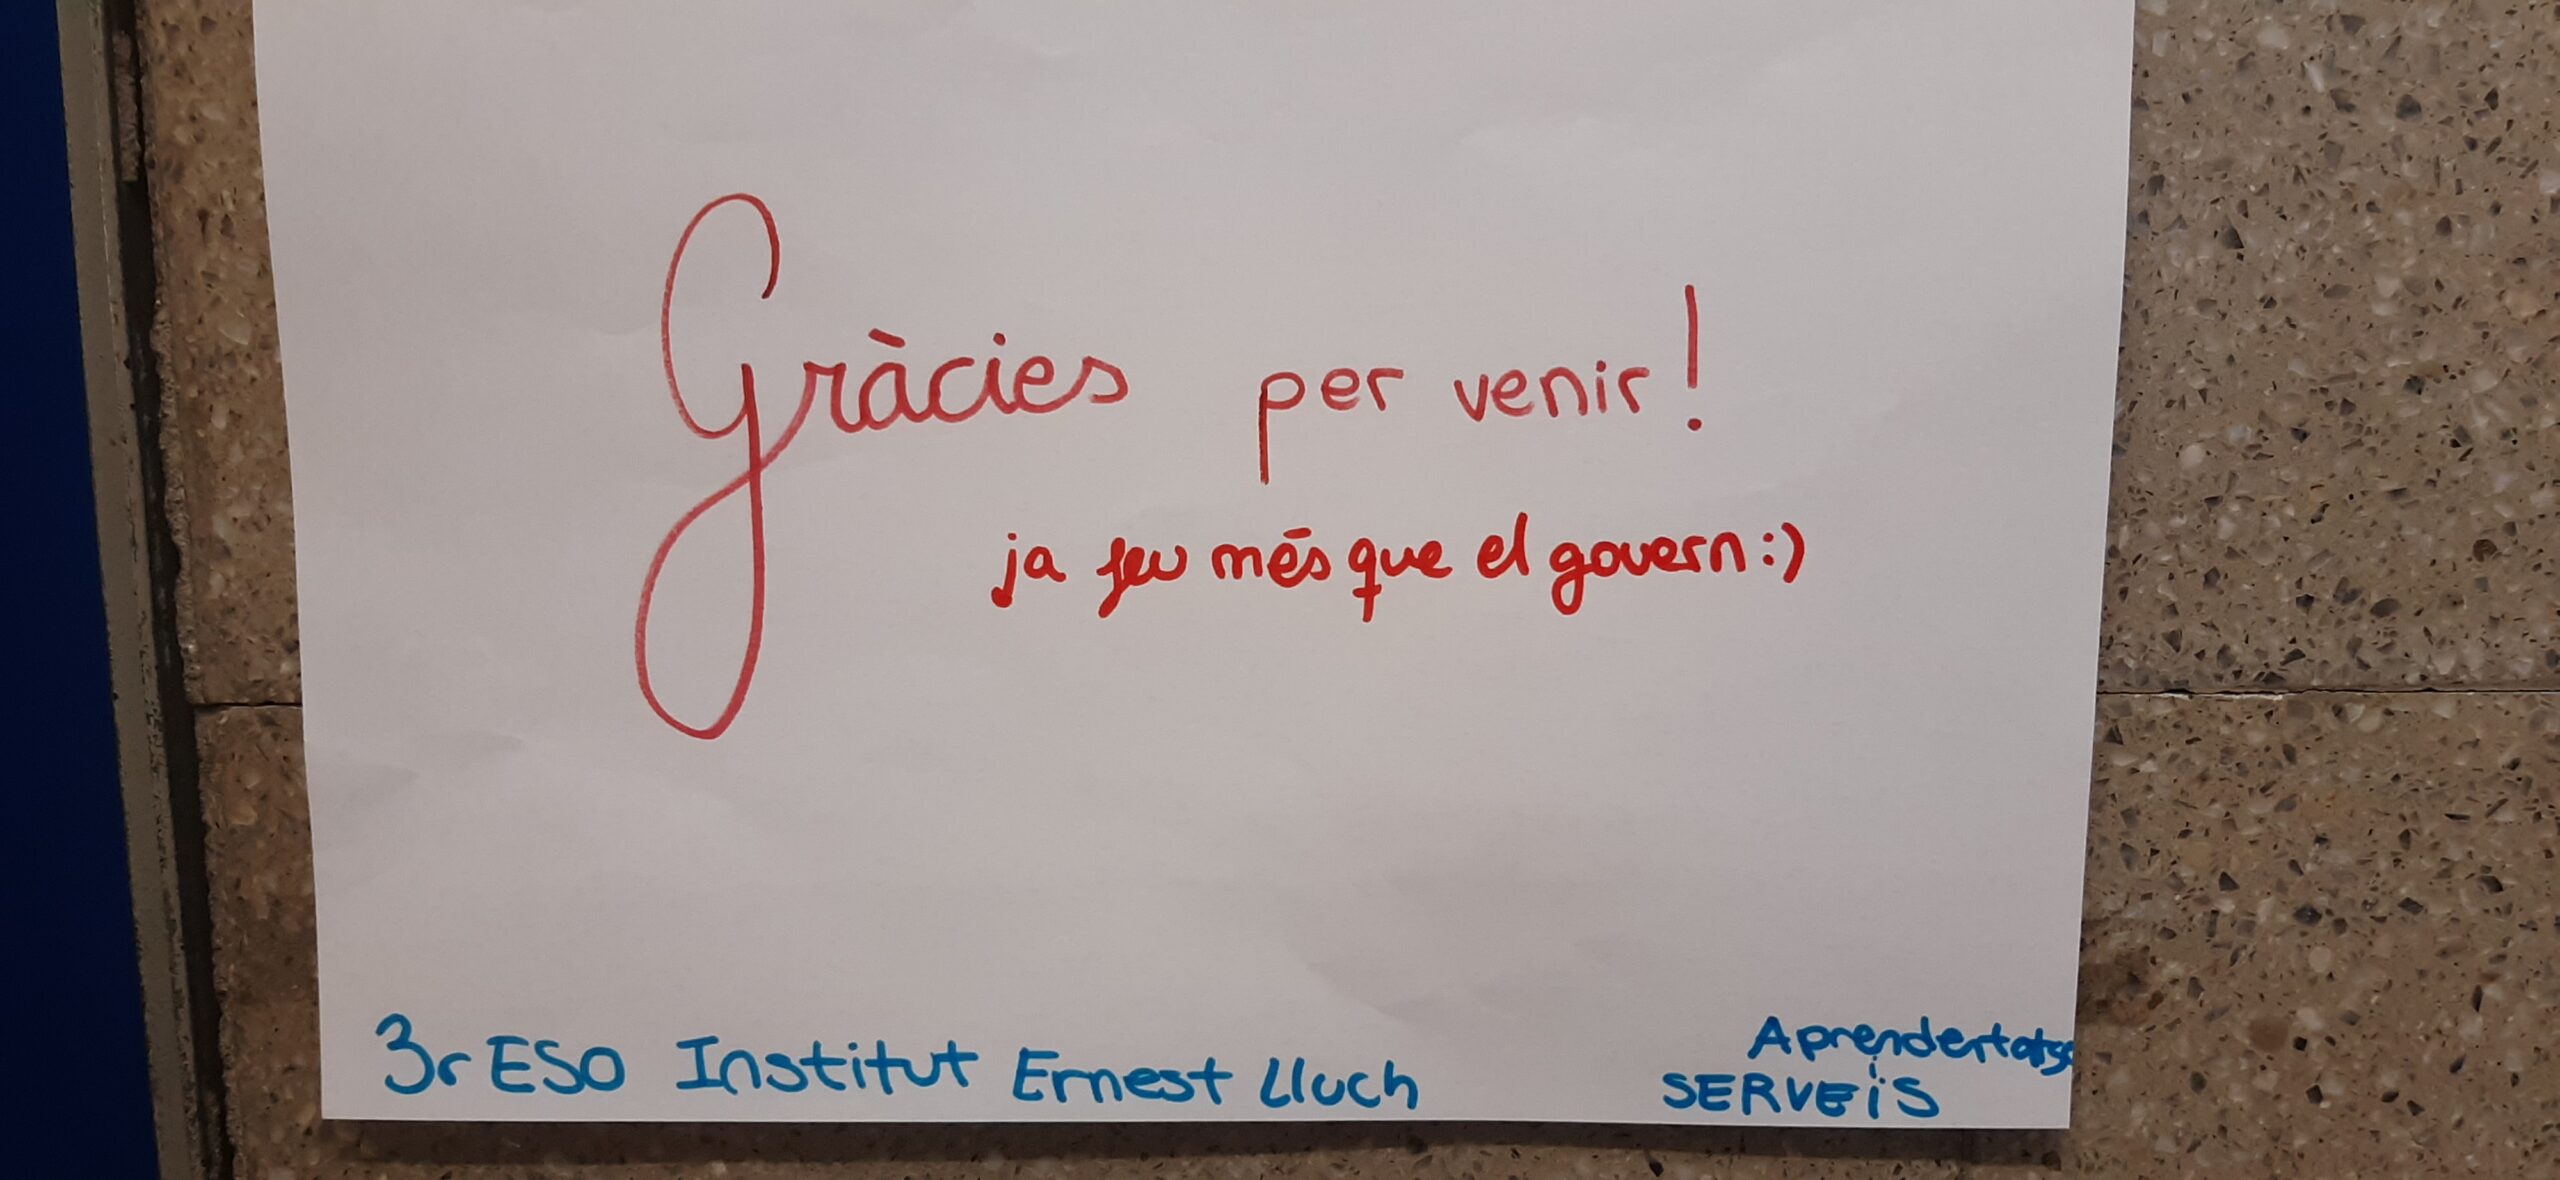 Gràcies per venir!
ja feu més que el govern:)
3r ESO Institut Ernest Lluch
SERVEiS